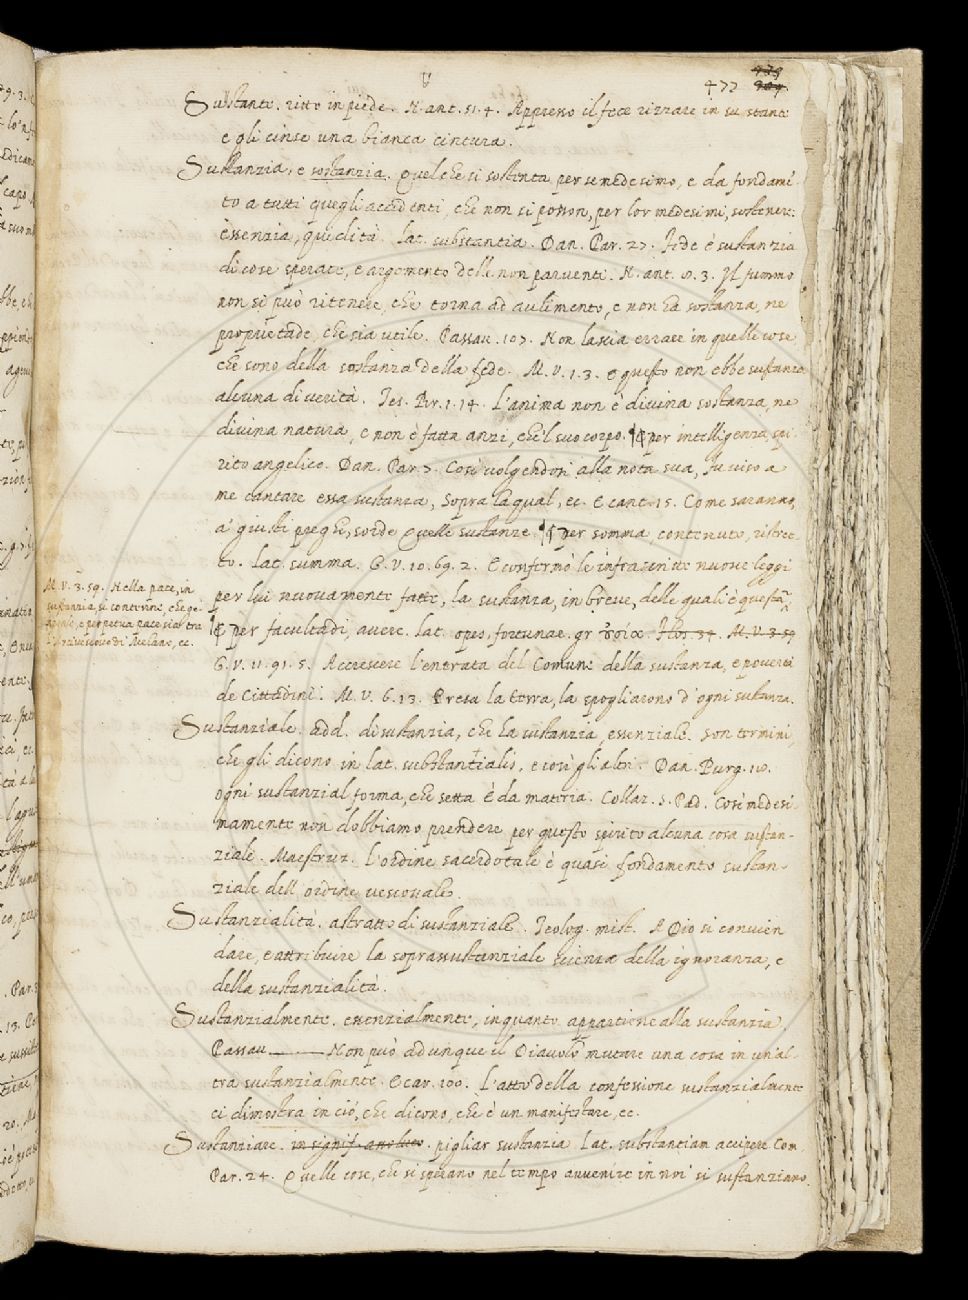 V
477
Sustante. ritto in piede. N. ant. 51. 4. Appresso il fece rizzare in su stante
e gli cinse una bianca cintura.
Sustanzia, e sostanzia. Quel che si sostenta per se medesimo, e da fondamẽ-
to a tutti quegli accidenti, che non si posson, per lor medesimi, sostenere:
essenzia, quidità. Lat. substantia. Dan. Par. 27. Fede è sustanzia
di cose sperate, e argomento delle non parventi. N. ant. 8. 3. Il fummo
non si può ritenere, che torna ad aulimento, e non ha sostanza, ne
proprietade, che sia utile. Passau. 107. Non lascia errare in quelle cose
che sono della sostanza della fede. M. V. 1. 3. e questo non ebbe sustanza
alcuna di verità. Tes. Br. 1. 14. L'anima non è divina sostanza, ne
divina natura, e non è fatta anzi, che 'l suo corpo. ¶ per intelligenza, spi-
rito angelico. Dan. Par. 7. Così volgendosi alla nota sua, fu viso a
me cantare essa sustanza, Sopra la qual, ec. E cant. 15. Come saranno,
a' giusti preghi, sorde Quelle sustanze. ¶ per somma contenuto, ristret-
to. Lat. summa. G. V. 10. 69. 2. E confermò le infrascritte nuove leggi
per lui nuovamente fatte, la sustanza, in breve, delle quali è questa
M. V. 3. 59. Nella pace, in
sustanzia, si contenne, che ge-
nerale, e perpetua pace sia tra
l'Arcivescovo di Melano, ec.
¶ per facultadi, avere. Lat. opes, fortunae. gr. οὐσία. Flos. 34. M. V. 3. 59
G. V. 11. 91. 5. Accrescere l'entrata del Comune della sustanza, e povertà
de Cittadini. M. V. 6. 13. Presa la terra, la spogliarono d'ogni sustanza.
Sustanziale. add. di sustanzia, che ha sustanzia, essenziale. son termini,
che gli dicono in lat. substantialis, e così gli altri. Dan. Purg. 18.
Ogni sustanzial forma, che setta è da materia. Collaz. S. Pad. Così medesi-
mamente non dobbiamo prendere per questo spirito alcuna cosa sustan-
ziale. Maestruz. L'ordine sacerdotale è quasi fondamento sustan-
ziale dell'ordine vescovale
Sustanzialità. astratto di sustanziale. Teolog. mist. A Dio si convien
dare, e attribuire la soprassustanziale scienza della ignoranza, e
della sustanzialità.
Sustanzialmente. essenzialmente, in quanto appartiene alla sustanzia.
Passau. Non può adunque il Diavolo mutare una cosa in un'al-
tra sustanzialmente. E car. 100. L'atto della confessione sustanzialmente
ci dimostra in ciò, che dicono, che è un manifestare, ec.
Sustanziare. in signif. assoluto. pigliar sustanzia Lat. substantiam accipere Com.
Par. 24. Quelle cose, che si sperano nel tempo avvenire in noi si sustanziano